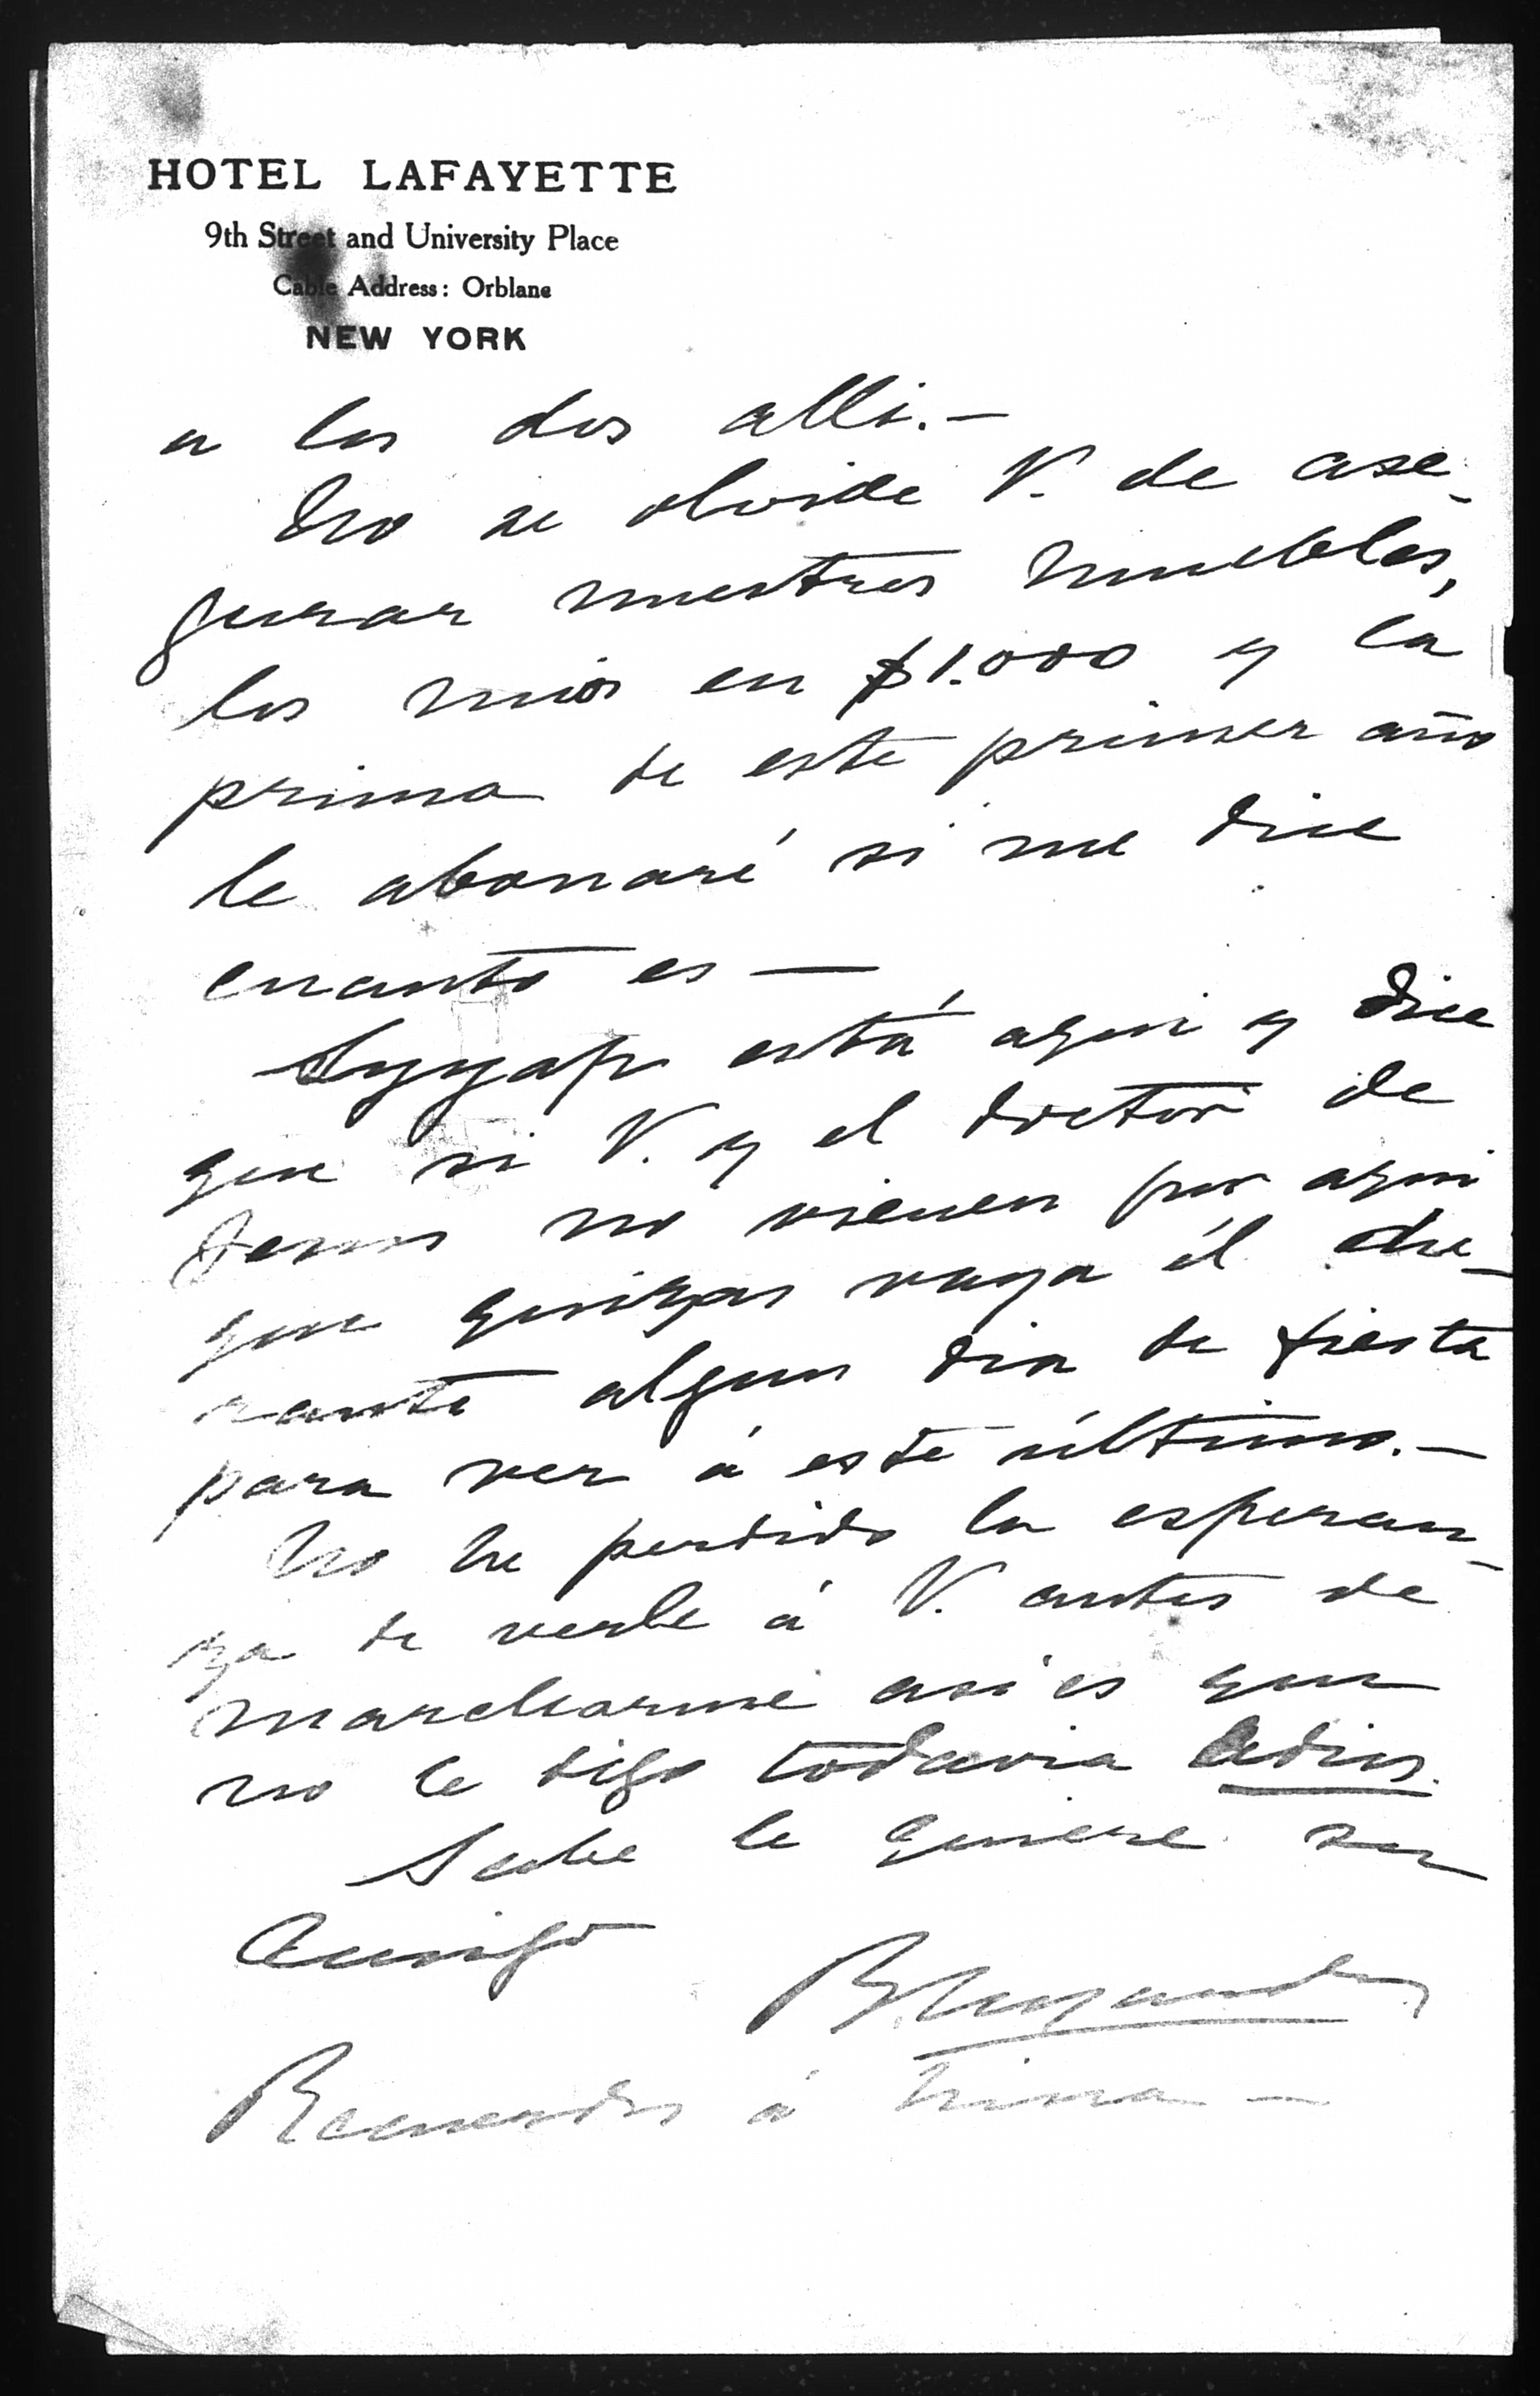 HOTEL LAFAYETTE
9th Street and University Place
Cable Address: Orblane
NEW YORK
a los dos alli.—
No se olvide V. de ase-
gurar nuestros muebles,
los mios en $1.000 y la
prima de este primer año
le abonaré si me dice
cuanto es —
está aqui y dice
que si V. y el doctor de
no vienen por aqui
que quizas vaya él du-
rante algun dia de fiesta
para ver á este último.—
No he perdido la esperan-
za de verle á V. antes de
marcharme asi es que
no le digo todavia Adios.
Sabe le quiere su
Amigo
Recuerdos á